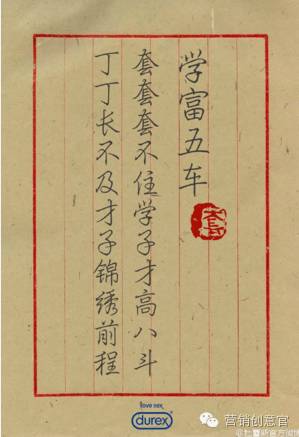 学富五车
套套套不住学子才高八斗
丁丁长不及才子锦绣前程
love sex
durex
营销创意官